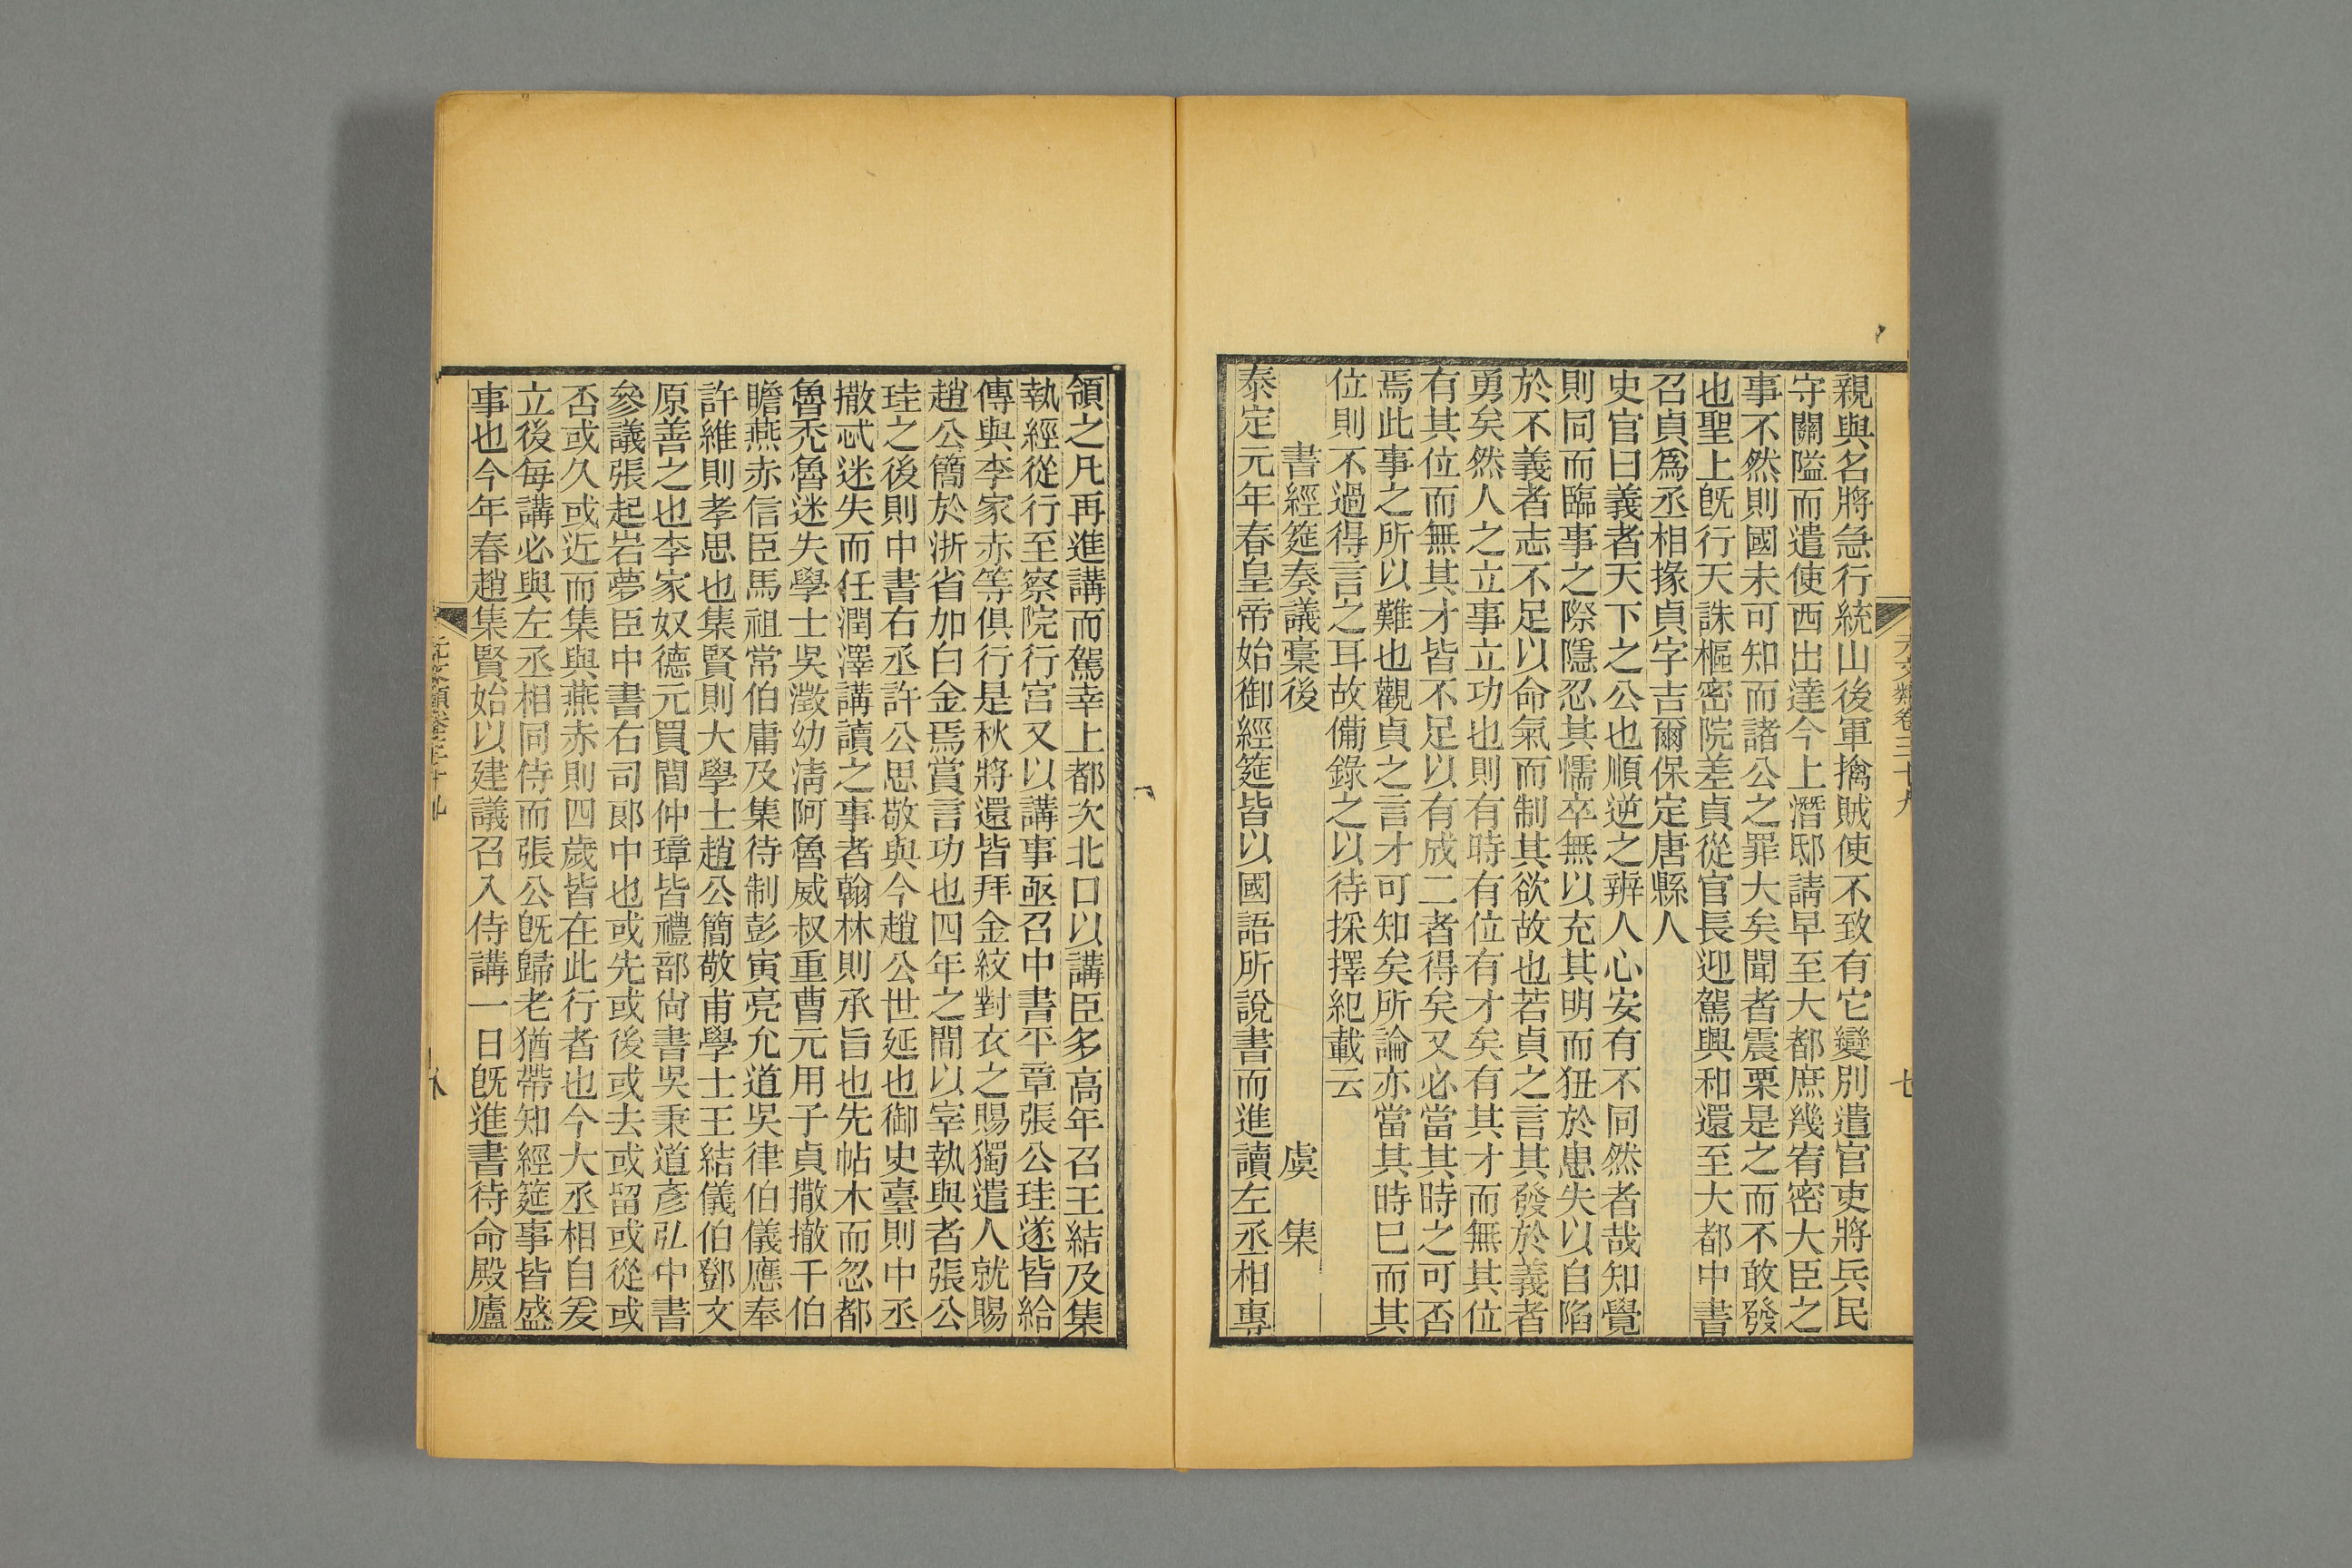 元文類卷三十九
七
親與名將急行統山後軍擒賊使不致有它變別遣官吏將兵民
守關隘而遣使西出達今上潛邸請早至大都庶幾宥密大臣之
事不然則國未可知而諸公之罪大矣聞者震栗是之而不敢發
也聖上旣行天誅樞密院差貞從官長迎駕興和還至大都中書
召貞爲丞相掾貞字吉爾保定唐縣人
史官曰義者天下之公也順逆之辨人心安有不同然者哉知覺
則同而臨事之際隱忍其懦卒無以充其明而狃於患失以自陷
於不義者志不足以命氣而制其欲故也若貞之言其發於義者
勇矣然人之立事立功也則有時有位有才矣有其才而無其位
有其位而無其才皆不足以有成二者得矣又必當其時之可否
焉此事之所以難也觀貞之言才可知矣所論亦當其時巳而其
位則不過得言之耳故備錄之以待採擇紀載云
書經筵奏議稾後 虞集
泰定元年春皇帝始御經筵皆以國語所說書而進讀左丞相專
領之凡再進講而駕幸上都次北口以講臣多高年召王結及集
執經從行至察院行宮又以講事亟召中書平章張公珪遂皆給
傳與李家赤等俱行是秋將還皆拜金紋對衣之賜獨遣人就賜
趙公簡於浙省加白金焉賞言功也四年之間以宰執與者張公
珪之後則中書右丞許公思敬與今趙公世延也御史臺則中丞
撒忒迷失而任潤澤講讀之事者翰林則承旨也先帖木而忽都
魯禿魯迷失學士吳澂幼淸阿魯威叔重曹元用子貞撒撤干伯
瞻燕赤信臣馬祖常伯庸及集待制彭寅亮允道吳律伯儀應奉
許維則孝思也集賢則大學士趙公簡敬甫學士王結儀伯鄧文
原善之也李家奴德元買閭仲璋皆禮部尙書吳秉道彥弘中書
參議張起岩夢臣中書右司郞中也或先或後或去或留或從或
否或久或近而集與燕赤則四歲皆在此行者也今大丞相自爰
立後每講必與左丞相同侍而張公旣歸老猶帶知經筵事皆盛
事也今年春趙集賢始以建議召入侍講一日旣進書待命殿廬